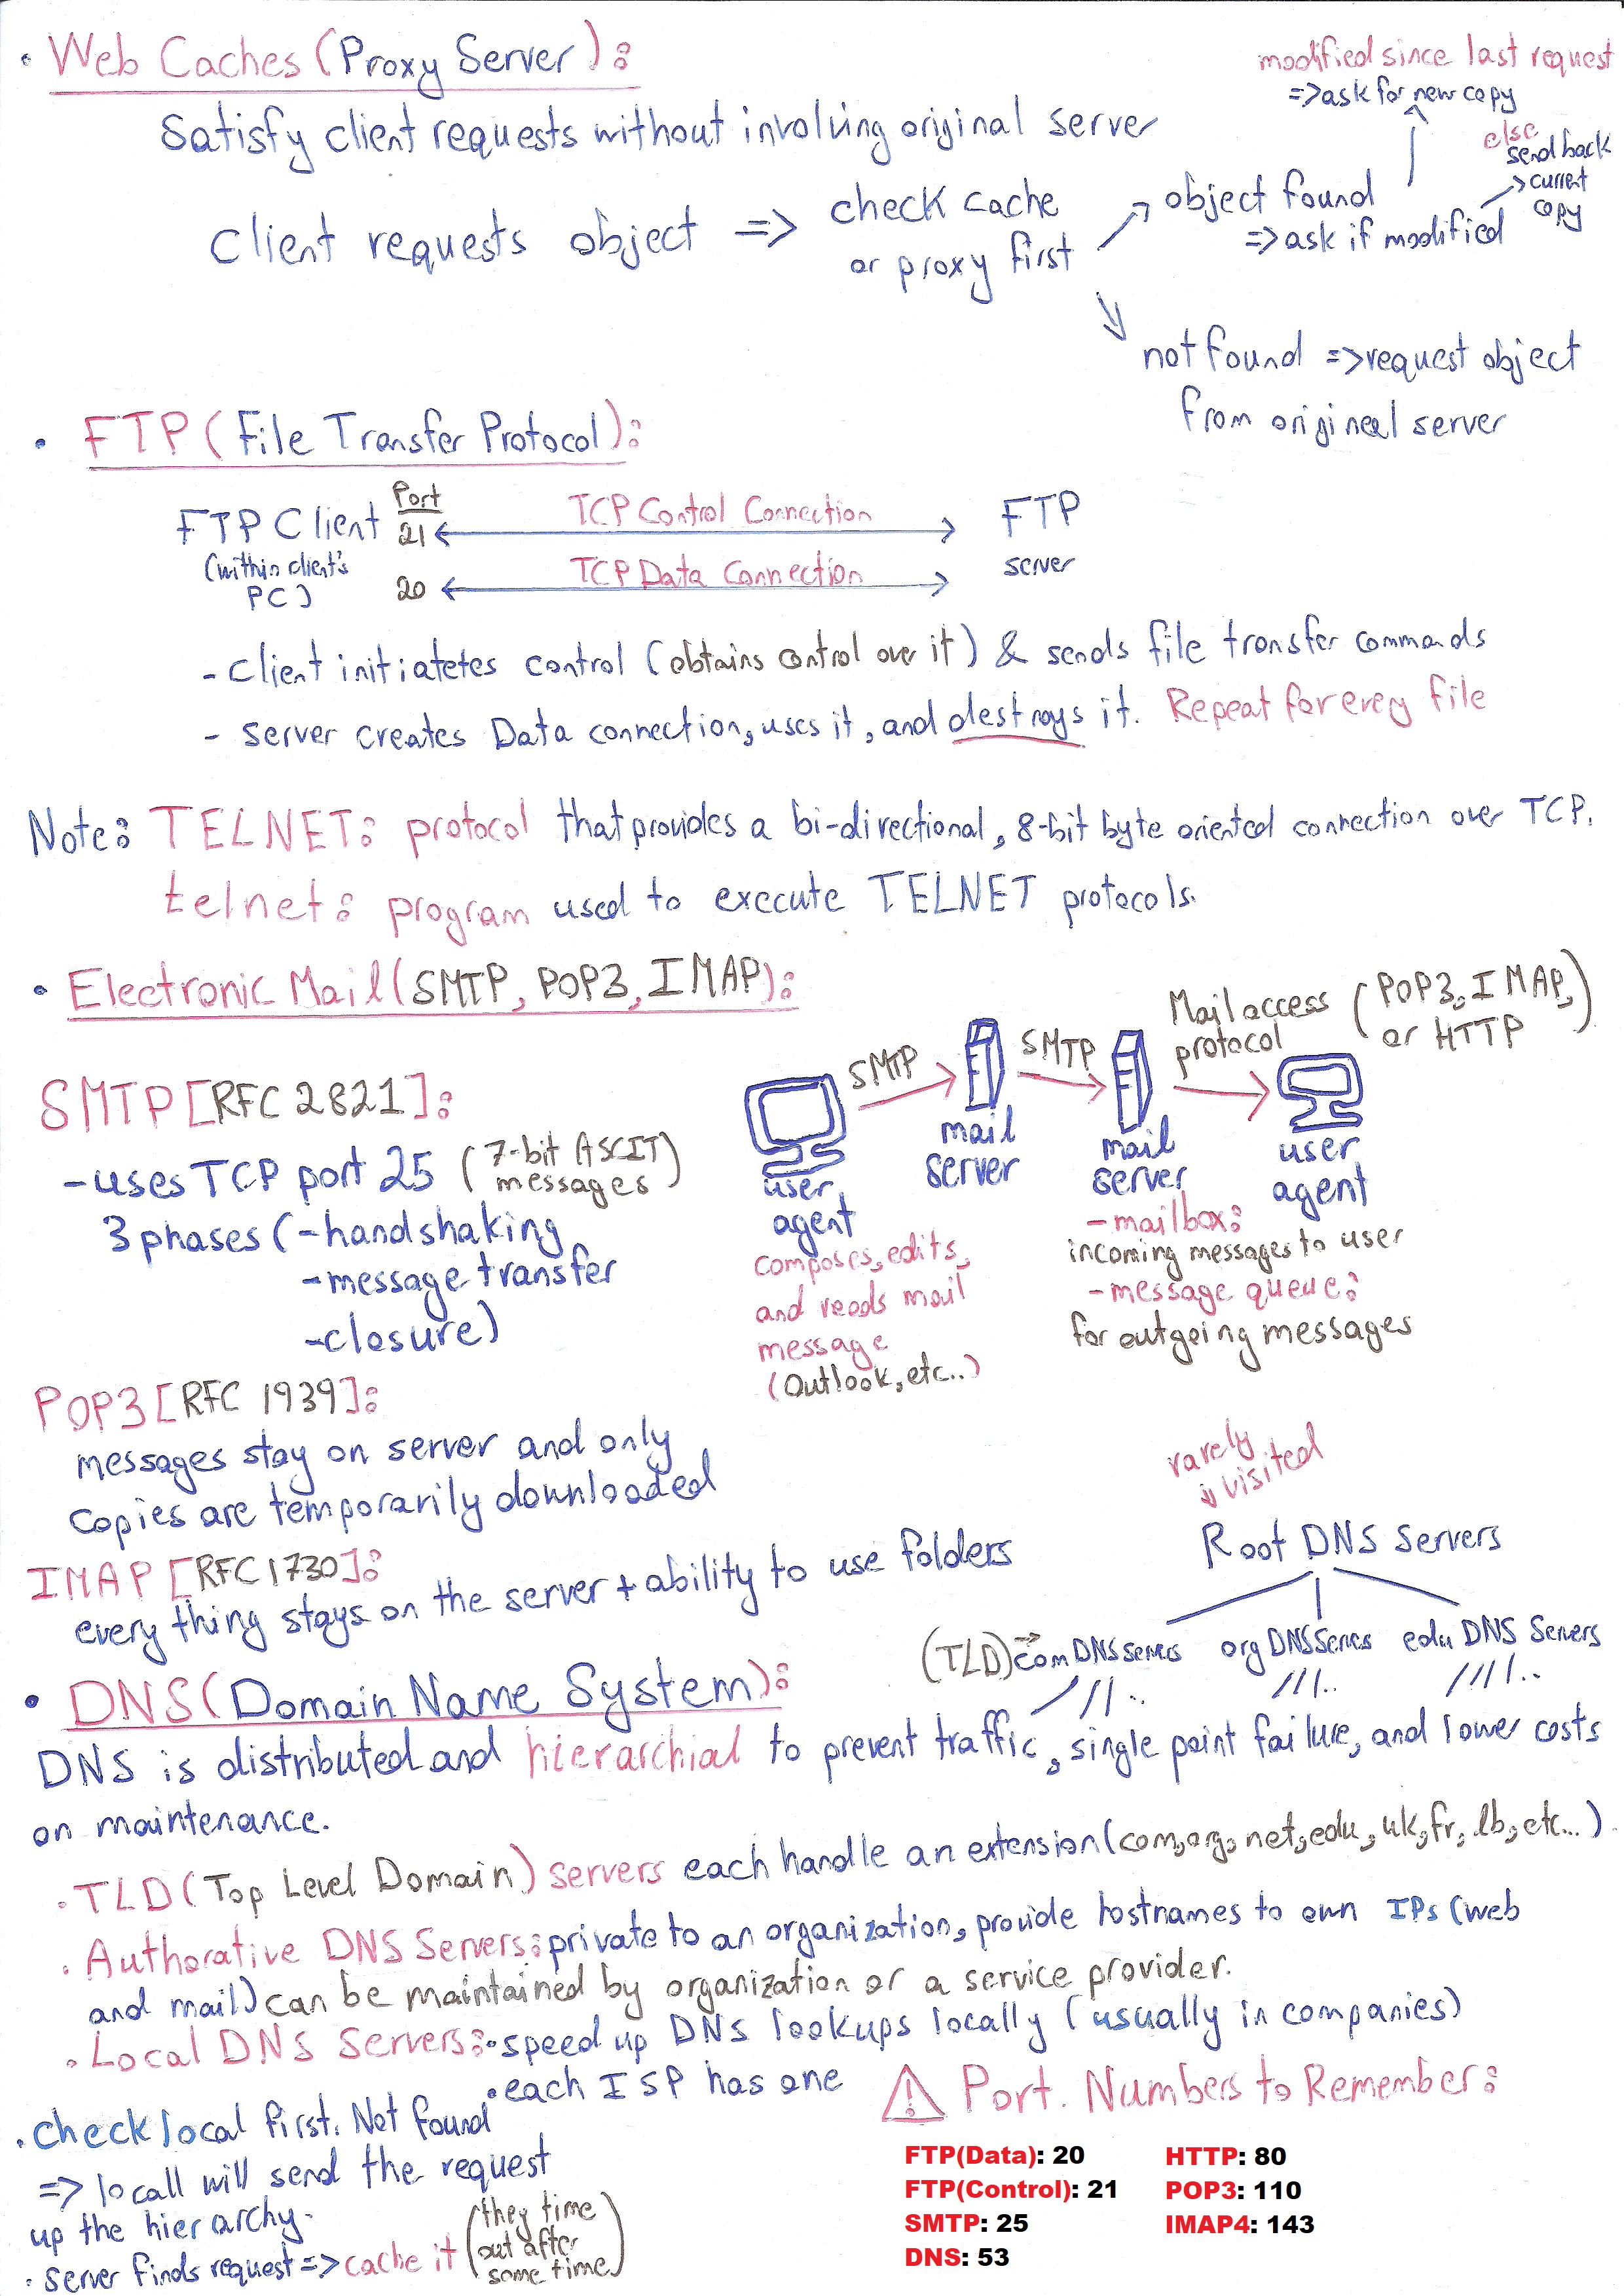 • Web Caches (Proxy Server):
Satisfy client requests without involving original server
client requests object => check cache
or proxy first
object found
=> ask if modified
modified since last request
=> ask for new copy
else
send back
current
copy
not found => request object
from origineal server
• FTP (File Transfer Protocol):
FTP Client
(within client's
PC)
Port
21
TCP Control Connection
20
TCP Data Connection
FTP
server
- client initiatetes control (obtains control over it) & sends file transfer commands
- server creates Data connection, uses it, and destroys it. Repeat for every file
Note: TELNET: protocol that provides a bi-directional, 8-bit byte oriented connection over TCP.
telnet: program used to execute TELNET protocols.
• Electronic Mail (SMTP, POP3, IMAP):
SMTP [RFC 2821]:
- uses TCP port 25 (7-bit ASCII
messages)
3 phases (- handshaking
- message transfer
- closure)
SMTP
SMTP
Mail access
protocol
(POP3, IMAP,
or HTTP)
user
agent
composes, edits,
and reads mail
message
(Outlook, etc..)
mail
server
mail
server
- mailbox:
incoming messages to user
- message queue:
for outgoing messages
user
agent
POP3 [RFC 1939]:
messages stay on server and only
copies are temporarily downloaded
IMAP [RFC 1730]:
every thing stays on the server + ability to use folders
rarely
visited
Root DNS Servers
(TLD) => com DNS servers
org DNS servers
edu DNS Servers
• DNS (Domain Name System):
DNS is distributed and hierarchial to prevent traffic, single point failure, and lower costs
on maintenance.
• TLD (Top Level Domain) servers each handle an extension (com, org, net, edu, uk, fr, lb, etc...).
• Authorative DNS Servers: private to an organization, provide hostnames to own IPs (web
and mail) can be maintained by organization or a service provider.
• Local DNS Servers: • speed up DNS lookups locally (usually in companies)
• each ISP has one
• check local first. Not found
=> locall will send the request
up the hierarchy.
• server finds request => cache it (they time
out after
some time)
⚠ Port. Numbers to Remember:
FTP(Data): 20
FTP(Control): 21
SMTP: 25
DNS: 53
HTTP: 80
POP3: 110
IMAP4: 143